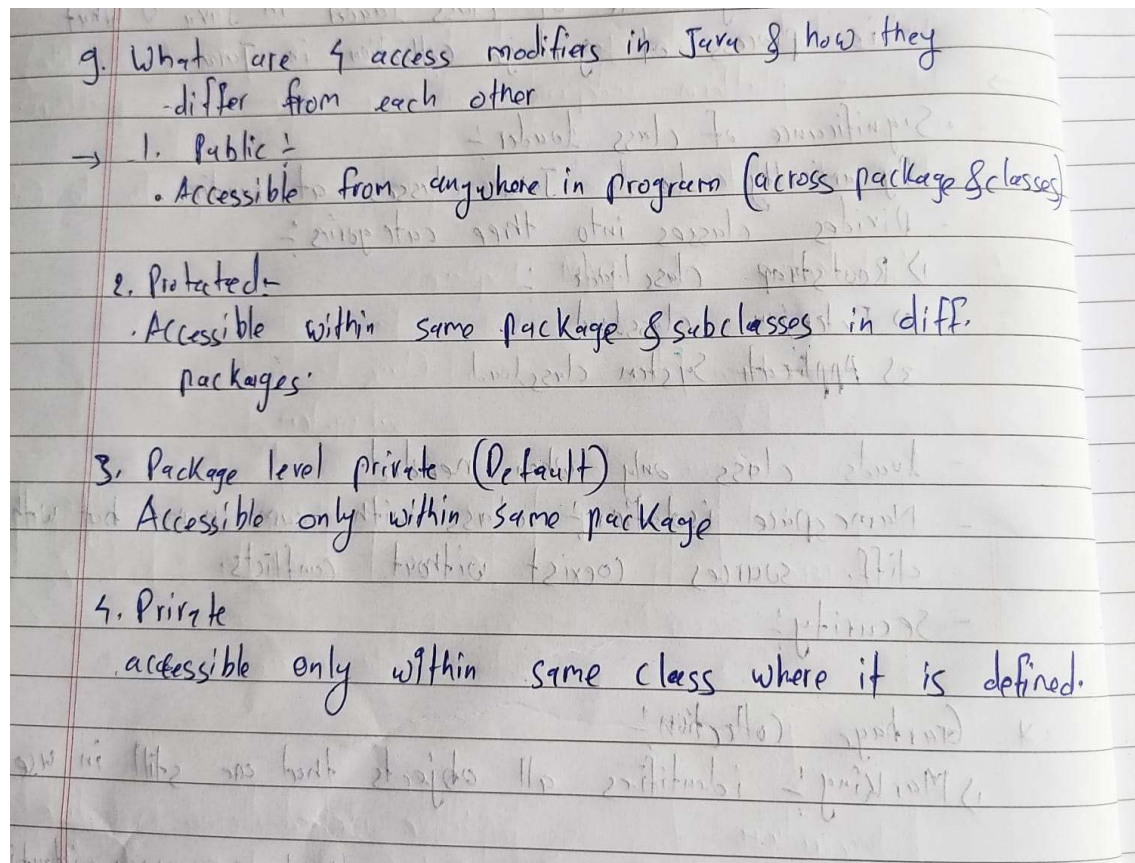 9. What are 4 access modifiers in Java & how they
differ from each other
→ 1. Public :-
• Accessible from anywhere in program (across package & classes)
2. Protected:-
• Accessible within same package & subclasses in diff.
packages.
3. Package level private (Default)
Accessible only within same package
4. Private
accessible only within same class where it is defined.